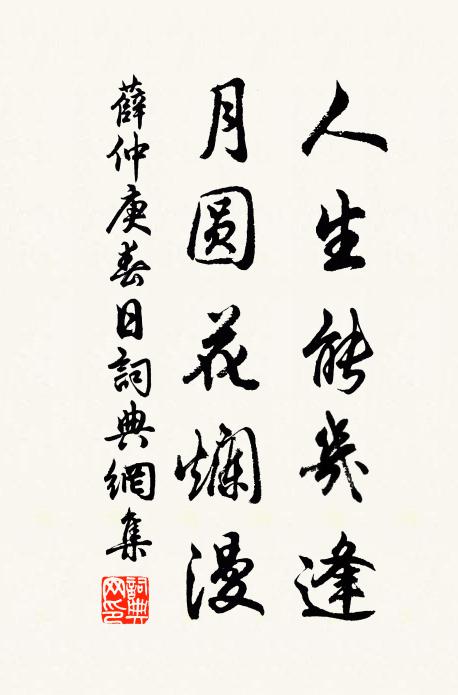 人生能幾逢
月圓花爛漫
薛仲庚春日詞典網集
詞典網印